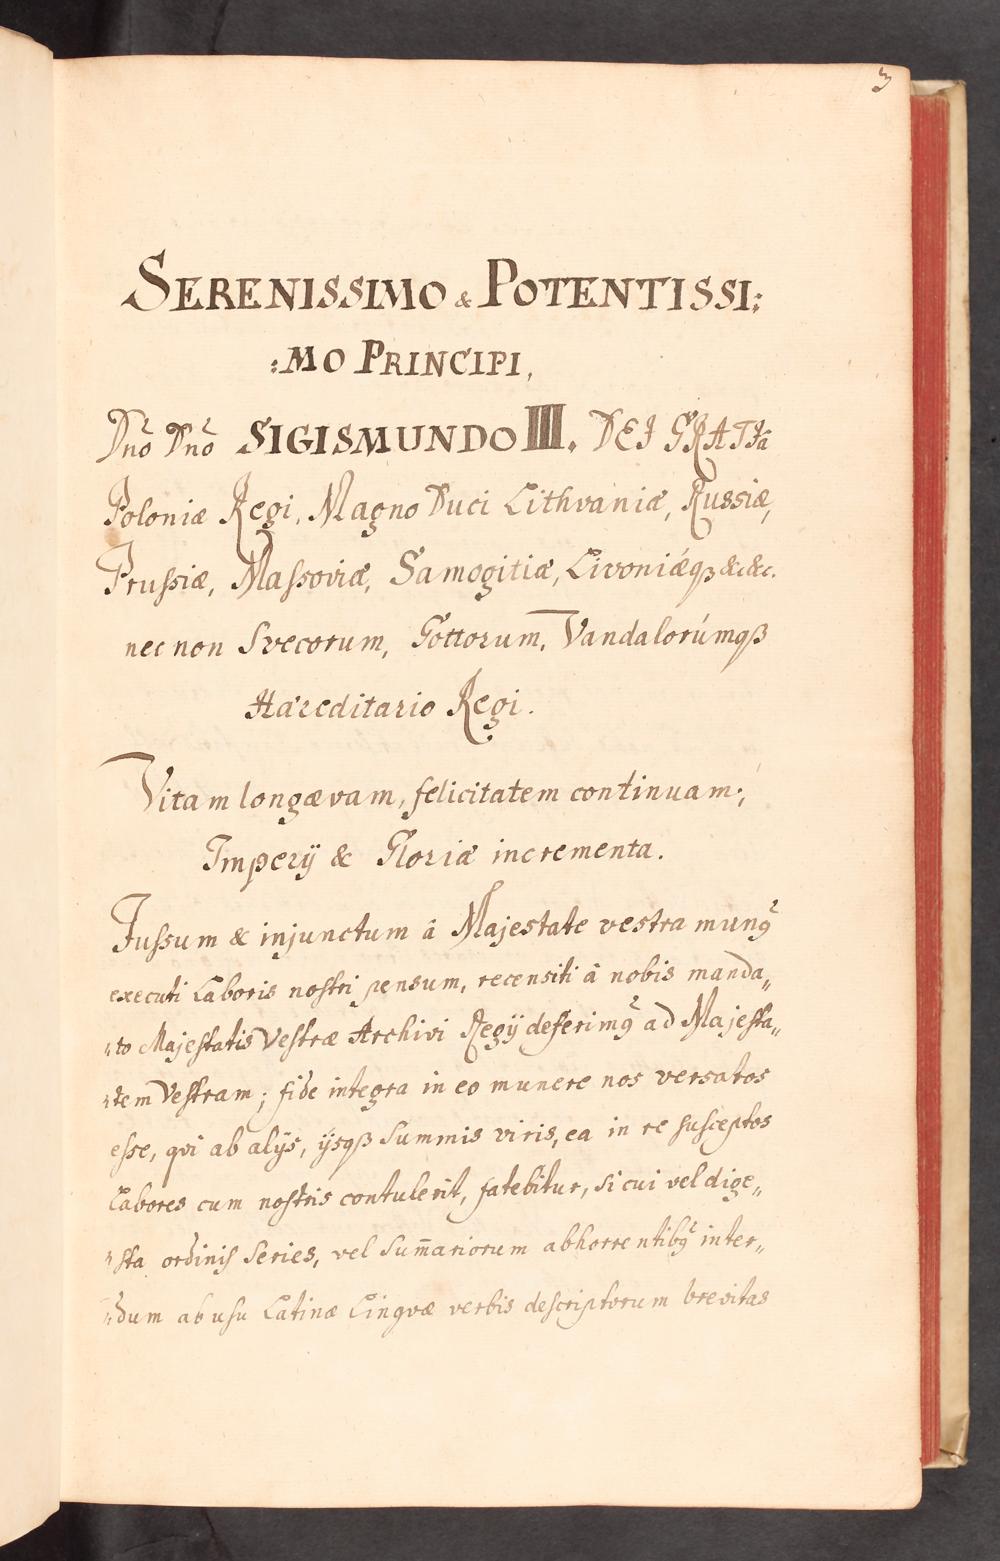 3
SERENISSIMO & POTENTISSI:
:MO PRINCIPI,
Dn̄o Dn̄o SIGISMUNDO III. DEI GRATIâ
Poloniæ Regi, Magno Duci Lithvaniæ, Russiæ,
Prussiæ, Massoviæ, Samogitiæ, Livoniǽqß &c &c.
nec non Svecorum, Gottorum, Vandalorúmqß
Hæreditario Regi.
Vitam longævam, felicitatem continuam;
Imperÿ & Gloriæ incrementa.
Jussum & injunctum â Majestate vestra munꝰ
executi Laboris nostri pensum, recensiti â nobis manda„
„to Majestatis Vestræ Archivi Regÿ deferimꝰ ad Majesta„
„tem Vestram; fide integra in eo munere nos versatos
esse, qvi ab alÿs, ÿsqß summis viris, ea in re susceptos
Labores cum nostris contulerit, fatebitur, si cui vel dige„
„sta ordinis series, vel sum̄ariorum abhorrentibꝰ inter„
„dum ab usu Latinæ Lingvæ verbis descriptorum brevitas